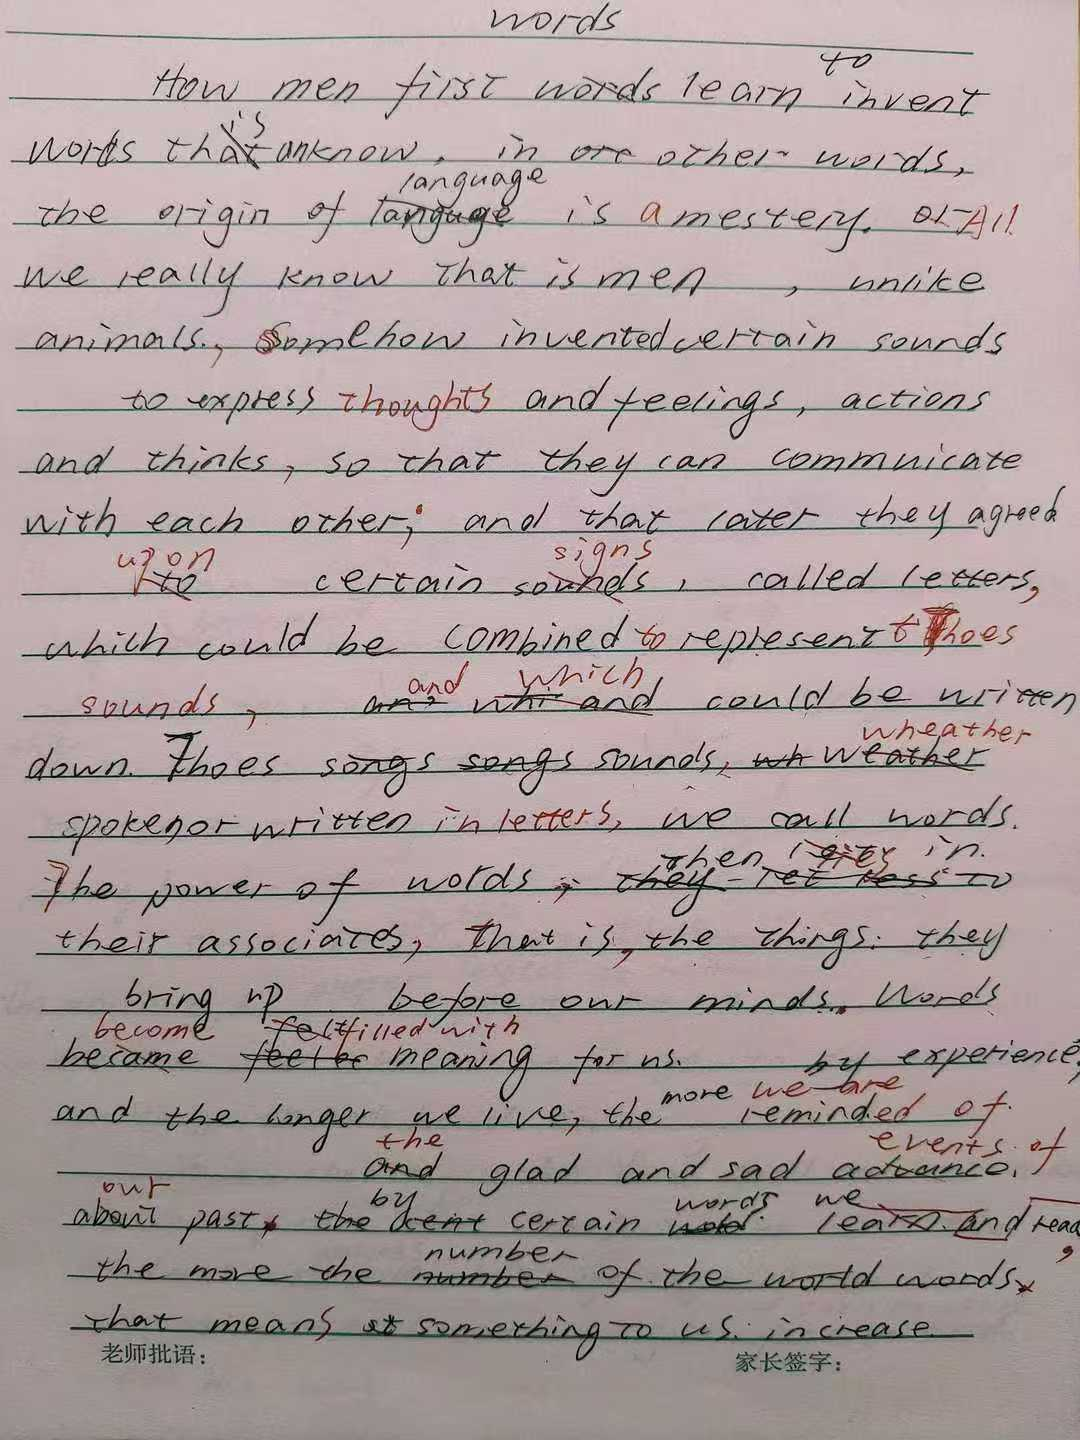 words
to
How men first words learn invent
is
words that anknow, in ore other words,
language
the origin of languge is a mestery. or All
we really know that is men , unlike
animals., somehow invented certain sounds
to express thoughts and feelings, actions
and thinks, so that they can commnicate
with each other; and that later they agreed
upon signs
to certain sounds, called letters,
which could be combined to represent thoes
and which
sounds, and whi and could be written
wheather
down. Thoes songs songs sounds, wh weather
spoken or written in letters, we call words.
then lies in.
The power of words, they ret ress to
their associates, that is, the things. they
bring up before our minds. Words
become felt filled with
became feeler meaning for us. by experience,
more we are
and the longer we live, the reminded of
the events of
and glad and sad advance.
our by words we
about past, the certain learn and read,
number
the more the number of the world words
that means something to us. increase.
老师批语: 家长签字: